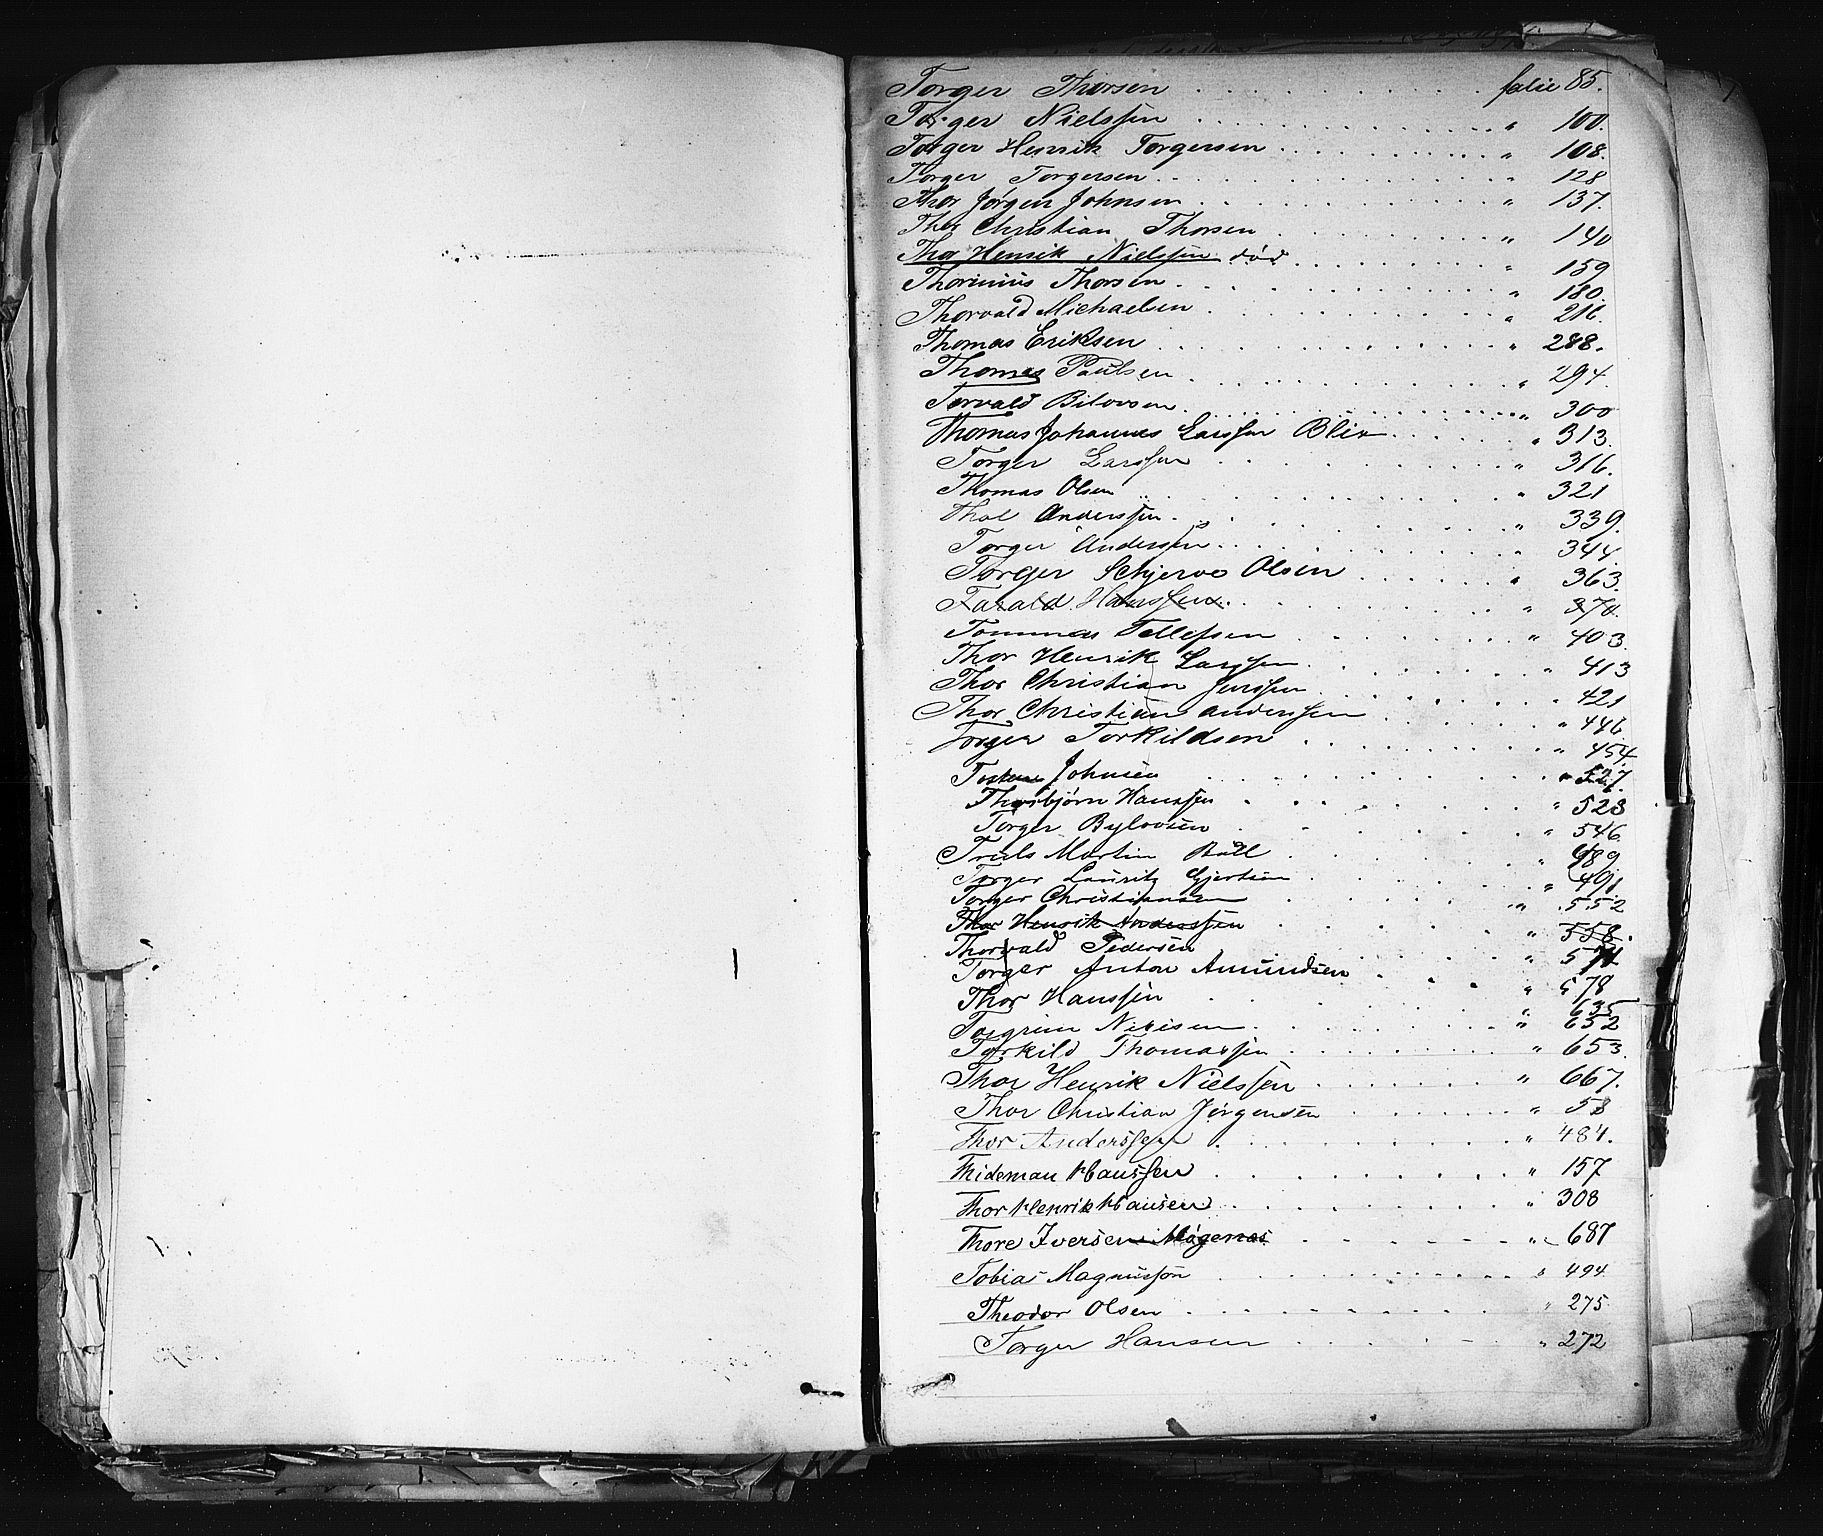 Torger Thorsen . . . . . . . . . . . folie 85.
Torger Nielssen . . . . . . . . . . . " 100.
Torger Henrik Torgersen . . . . . . . . . . . " 108.
Torger Torgersen . . . . . . . . . . . " 128
Thor Jørgen Johnsen . . . . . . . . . . . " 137.
Thor Christian Thorsen . . . . . . . . . " 140
Thor Henrik Nielssen død . . . . . . . . " 159
Thorinius Thorsen . . . . . . . . . . " 180.
Thorvald Michaelsen . . . . . . . . . . " 216.
Thomas Eriksen . . . . . . . . . . " 288.
Thomas Paulsen . . . . . . . . . . " 294.
Torvald Bilovsen . . . . . . . . . . " 300
Thomas Johannes Larssen Blix . . . . . . " 313.
Torger Larssen . . . . . . . . . . " 316.
Thomas Olsen . . . . . . . . . . " 321
Anderssen . . . . . . . . . . " 339.
Torger Andersen . . . . . . . . . . " 344.
Torger Schjervo Olsen . . . . . . " 363.
Tarald Hanssen . . . . . . . . . . " 370.
Tommas Tellefsen . . . . . . . . " 403.
Thor Henrik Larssen . . . . . . . . " 413
Thor Christian Jenssen . . . . . . . . " 421
Thor Christian Anderssen . . . . . . " 446.
Torger Torkildsen . . . . . . . . " 454
Johnsen . . . . . . . . " 527.
Thorbjørn Hanssen . . . . . . . . " 523
Torger Bylovsen . . . . . . . . " 546.
Truls Martin . . . . . . . . " 489.
Torger Lauritz Gjertsen . . . . . . . . " 491
Torger Christiansen . . . . . . . . " 552
Thor Henrik Anderssen . . . . . . . . " 558.
Thorvald Pedersen . . . . . . . . " 571
Torger Anton Amundsen . . . . . . " 578
Thor Hanssen . . . . . . . . " 635
Torgrim Nilsen . . . . . . . . " 652
Torkild Thomassen . . . . . . . . " 653.
Thor Henrik Nielssen . . . . . . . " 667.
Thor Christian Jørgensen . . . . . . " 58
Thor Anderssen . . . . . . . . " 484.
Thideman Haussen . . . . . . . . " 157
Thor Henrik Hansen . . . . . . . . " 308
Thore Iversen Mogenæs . . . . . . " 687
Tobias Magnussøn . . . . . . . . " 494
Theodor Olsen . . . . . . . . " 275.
Torger Hansen . . . . . . " 272